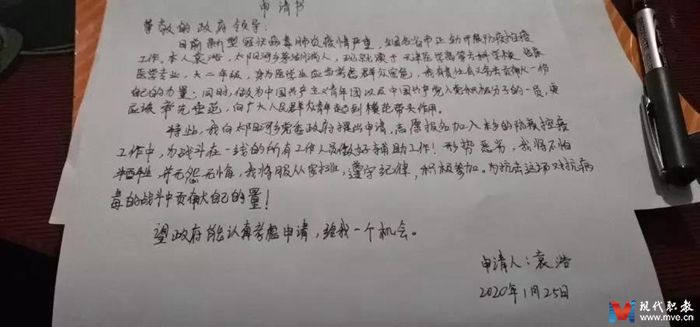 申请书
尊敬的政府领导！
目前新型冠状病毒肺炎疫情严重，全国各省市正动开展防疫控疫
工作。本人袁浩，太阳河乡人，现就读于天津医学高等专科学校临床
医学专业，大二年级，身为医学生应当考虑群众安危，我有责任有义务去贡献一份
自己的力量，同时，作为中国共产主义青年团以及中国共产党入党积极分子的一员，更
应该率先垂范，向广大人民群众青年起到模范带头作用。
特此，我向太阳河乡党委政府提出申请，志愿报名加入本乡的防疫控疫
工作中，为战斗在一线的所有工作人员做好辅助工作！形势恶劣，我将不怕
牺牲，并无怨无悔，我将服从安排，遵守纪律，积极参加。为抗击这场对抗病
毒的战斗中贡献自己的量！
望政府能认真考虑申请，给我一个机会。
申请人：袁浩
2020年1月25日
现代职教
www.mve.cn